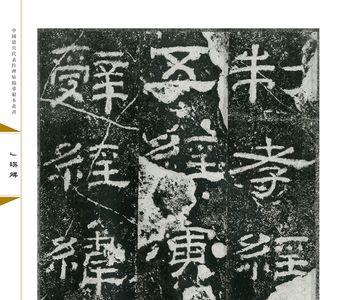 制孝經
五經演
辭經緯
中國最具代表性碑帖臨摹範本叢書
乙瑛碑